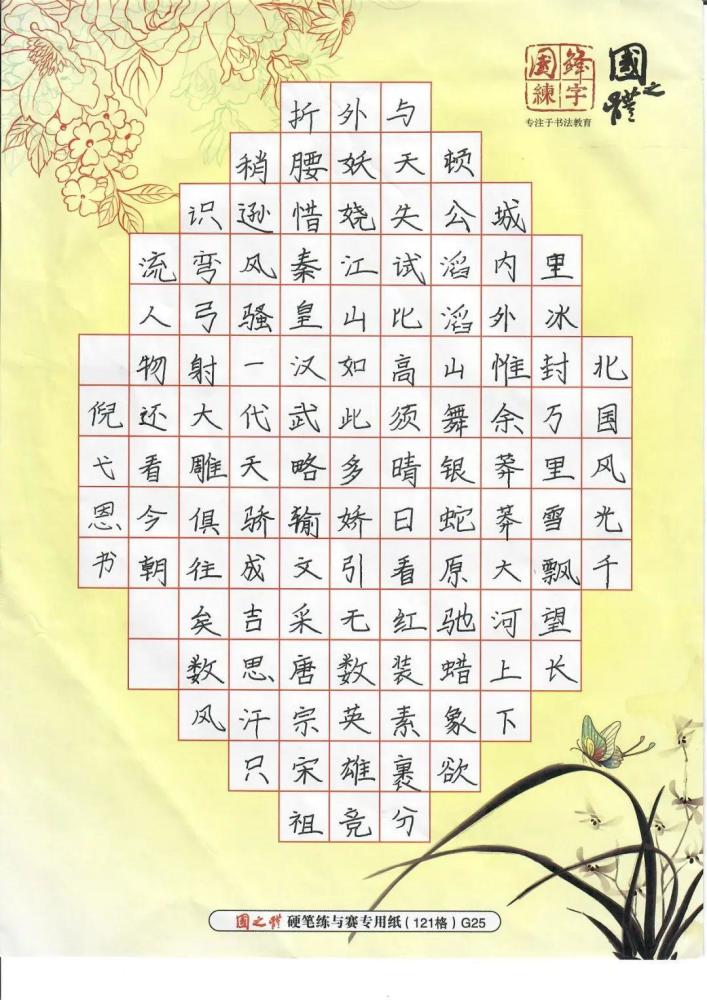 北国风光千
里冰封万里雪飘望长
城内外惟余莽莽大河上下
顿公滔滔山舞银蛇原驰蜡象欲
与天失试比高须晴日看红装素裹分
外妖娆江山如此多娇引无数英雄竞
折腰惜秦皇汉武略输文采唐宗宋祖
稍逊风骚一代天骄成吉思汗只
识弯弓射大雕俱往矣数风
流人物还看今朝
倪弋恩书
國鋒練字
专注于书法教育
國之禮
國之禮 硬笔练与赛专用纸(121格)G25